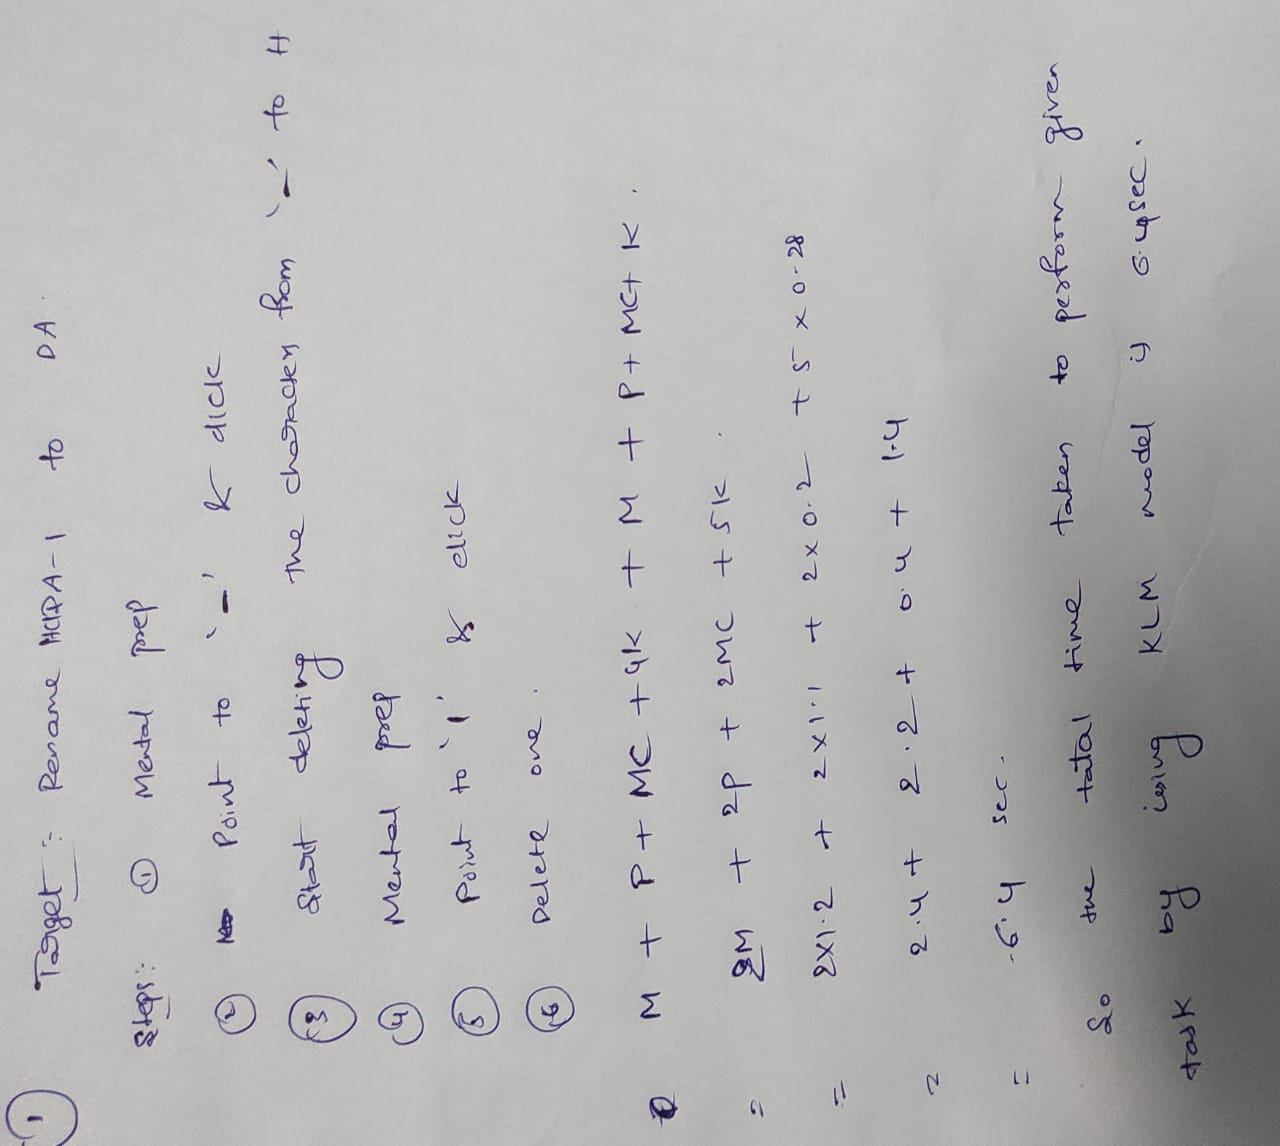 1
Target:- Rename HCIDA-1 to DA.
Steps:- ① Mental prep
② Point to '-' & click
③ Start deleting the characters from '-' to H
④ Mental prep
⑤ Point to '1' & click
⑥ Delete one.
M + P + MC + 4K + M + P + MC + K.
= 2M + 2P + 2MC + 5K.
= 2x1.2 + 2x1.1 + 2x0.2 + 5x0.28
= 2.4 + 2.2 + 0.4 + 1.4
= 6.4 sec.
So the total time taken to perform given
task by using KLM model is 6.4 sec.